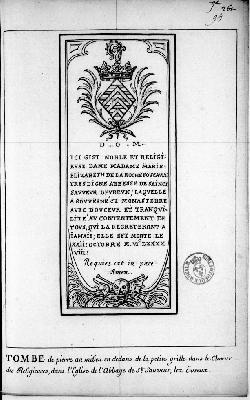 D. O. M.
ICI GIST NOBLE ET RELIGI
EVSE DAME MADAME MARIE
ELIZABETH DE LA ROCHEFOVCAVLT
TRES DIGNE ABBESSE DE SAINCT
SAVVEVR D'EVREVX, LAQVELLE
A GOVVERNE CE MONASTERE
AVEC DOVCEVR ET TRANQVI
LITE AV CONTENTEMENT DE
TOVS, QVI LA REGRETERONT A
IAMAIS; ELLE EST MORTE LE
OCTOBRE
Requiescat in pace
Amen.
TOMBE de pierre au milieu en dedans de la petite grille dans le Choeur
des Religieuses, dans l'Eglise de l'Abbaye de St. Sauveur, lez Evreux.